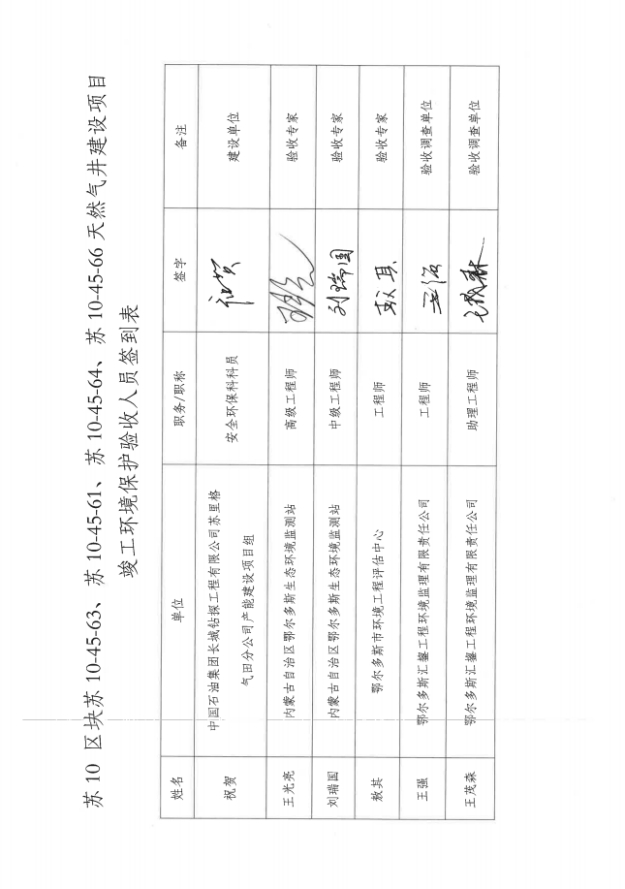 苏 10 区块苏 10-45-63、苏 10-45-61、苏 10-45-64、苏 10-45-66 天然气井建设项目
竣工环境保护验收人员签到表
姓名 单位 职务/职称 签字 备注
祝贺 中国石油集团长城钻探工程有限公司苏里格 安全环保科科员 祝贺 建设单位
气田分公司产能建设项目组
王光亮 内蒙古自治区鄂尔多斯生态环境监测站 高级工程师 验收专家
刘瑞国 内蒙古自治区鄂尔多斯生态环境监测站 中级工程师 刘瑞国 验收专家
敖其 鄂尔多斯市环境工程评估中心 工程师 敖其 验收专家
王强 鄂尔多斯汇鋆工程环境监理有限责任公司 工程师 王强 验收调查单位
王茂森 鄂尔多斯汇鋆工程环境监理有限责任公司 助理工程师 王茂森 验收调查单位